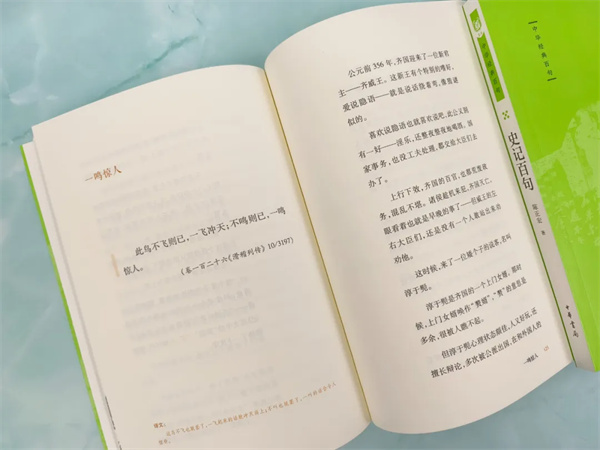 一鸣惊人
此鸟不飞则已，一飞冲天；不鸣则已，一鸣
惊人。
（卷一百二十六《滑稽列传》10/3197）
译文：
公元前 356 年，齐国迎来了一位新君
主——齐威王。这新王有个特别的嗜好，
爱说隐语——就是说话绕着弯，像猜谜
似的。
喜欢说隐语也就喜欢说吧，此公又别
有一好——淫乐，还整夜整夜地喝酒，国
家事务，也没工夫处理，都交给大臣们去
办了。
上行下效，齐国的百官，也都荒废政
务，混乱不堪。诸侯趁机来犯，齐国灭亡，
眼看着也就是早晚的事了——但威王的左
右大臣们，还是没有一个人敢站出来劝
劝他。
这时候，来了一位矮个子的谐客，名叫
淳于髡。
淳于髡是齐国的一个上门女婿。那时
候，上门女婿唤作“赘婿”，“赘”的意思是
多余，很被人瞧不起。
但淳于髡心理状态颇佳，人又好玩，还
擅长辩论，多次被公派出国，在和外国人的
一鸣惊人
中华经典百句
史记百句
陈正宏 著
中华书局
中华经典百句